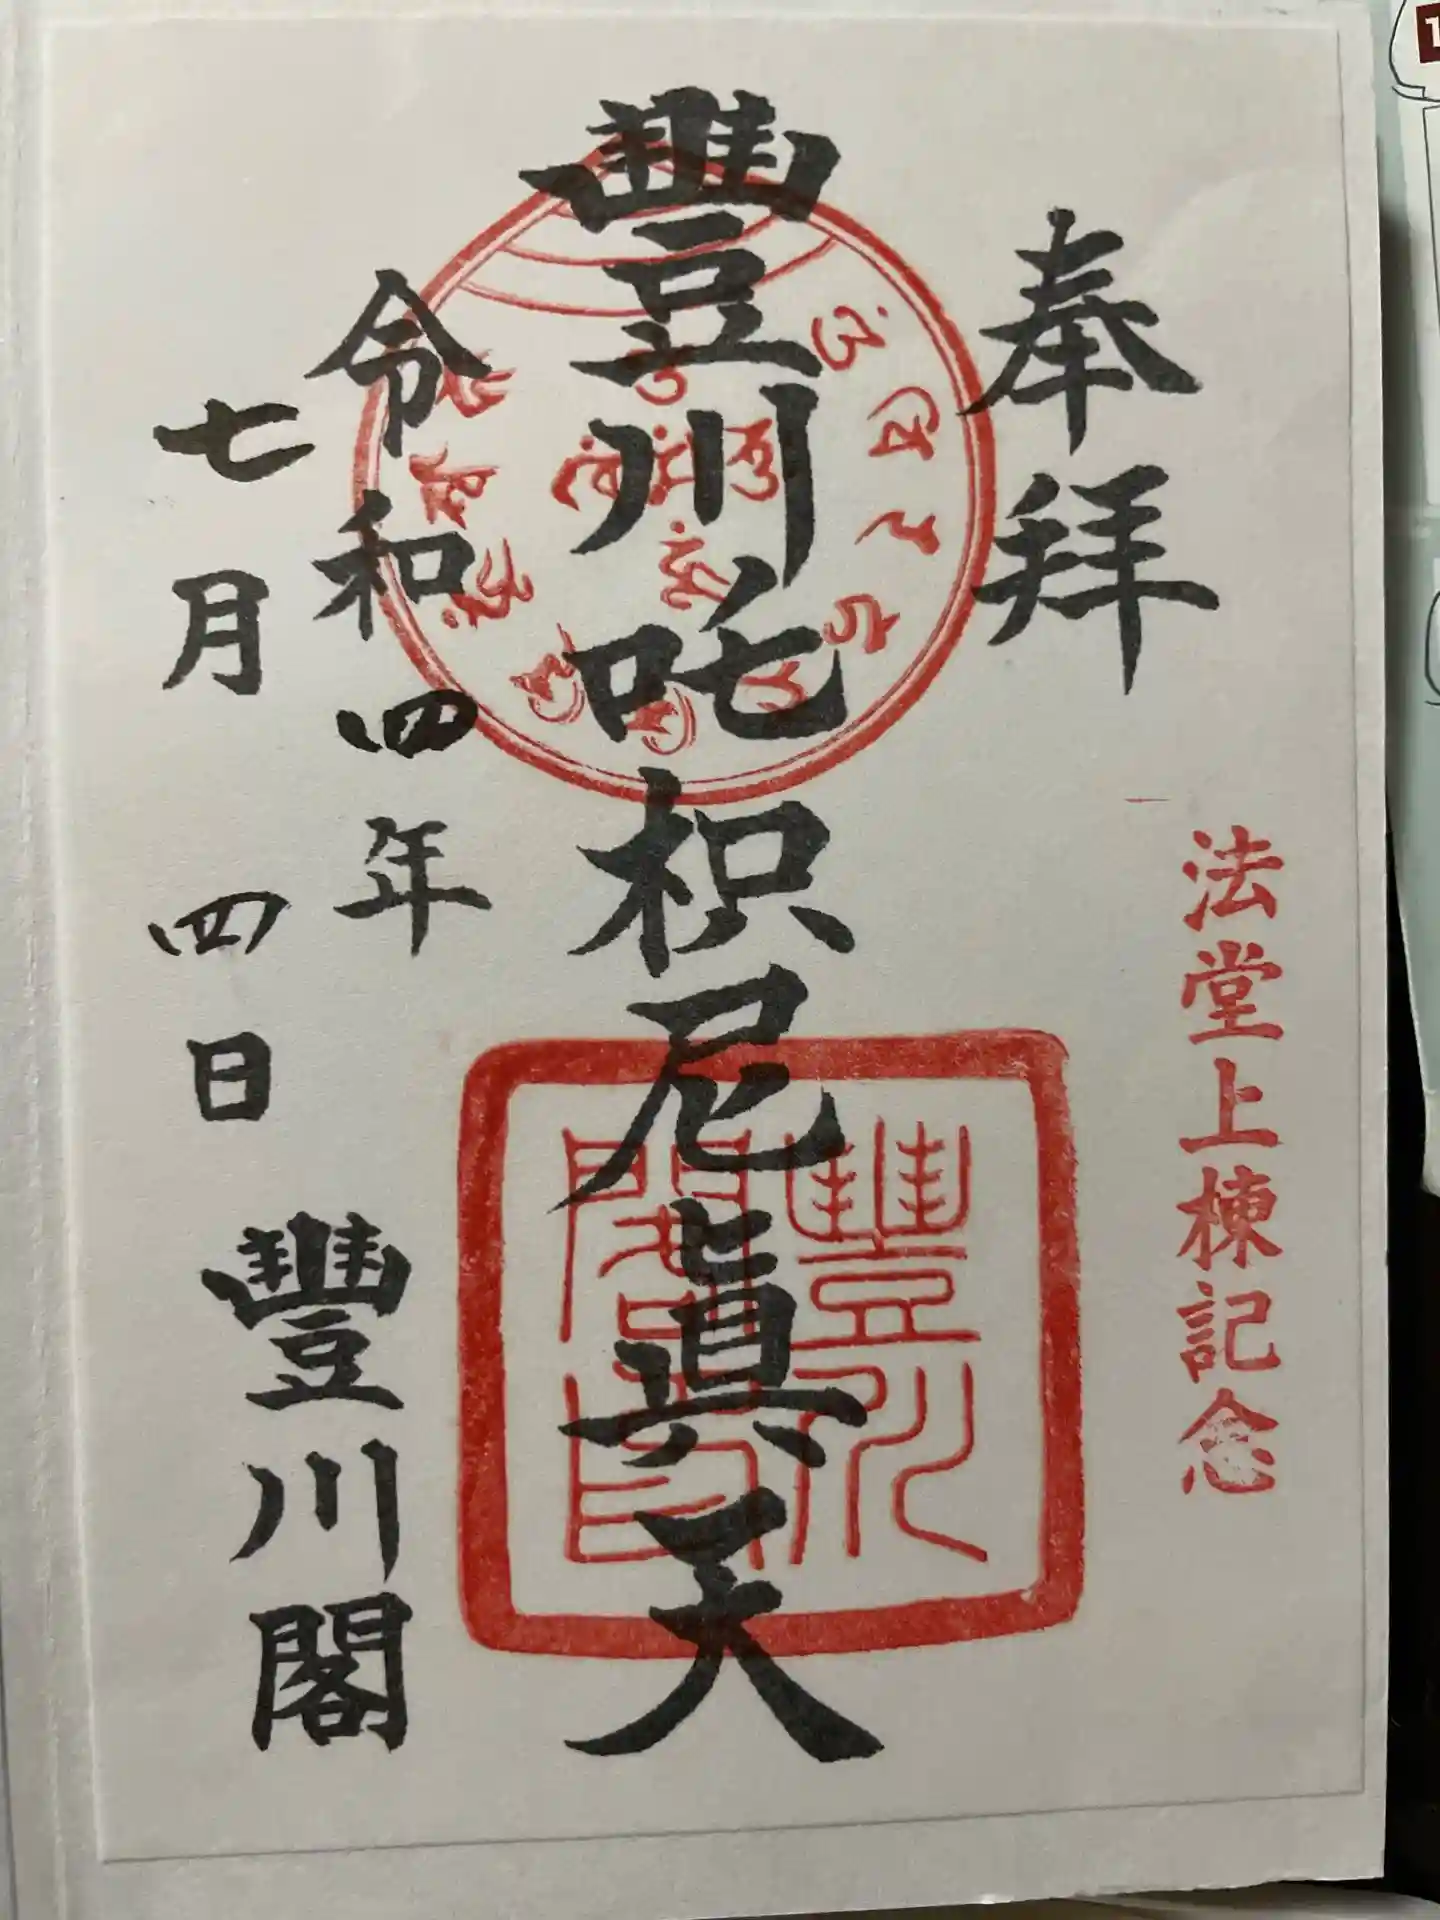 奉拜
法堂上棟記念
豐川吒枳尼眞天
令和四年
七月四日
豐川閣
豐川閣印